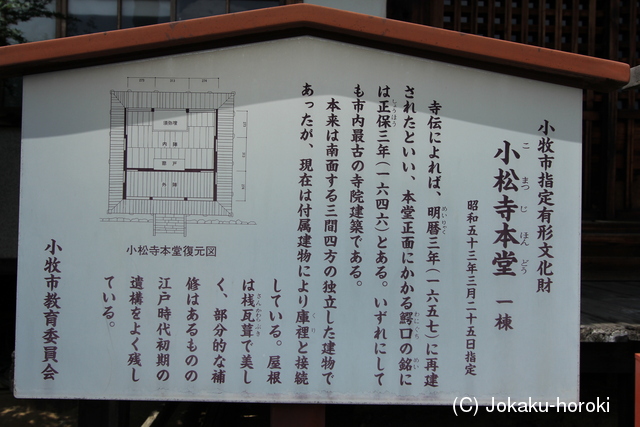 小牧市指定有形文化財
小松寺本堂 一棟
こまつじほんどう
昭和五十三年三月二十五日指定
寺伝によれば、明暦三年(一六五七)に再建
めいれき
されたといい、本堂正面にかかる鰐口の銘に
わにぐち
めい
は正保三年(一六四六)とある。いずれにして
しょうほう
も市内最古の寺院建築である。
本来は南面する三間四方の独立した建物で
あったが、現在は付属建物により庫裡と接続
くり
している。屋根
は桟瓦葺で美し
さんかわらぶき
く、部分的な補
修はあるものの
江戸時代初期の
遺構をよく残し
ている。
小牧市教育委員会
須弥壇
内陣
外陣
小松寺本堂復元図
(C) Jokaku-horoki